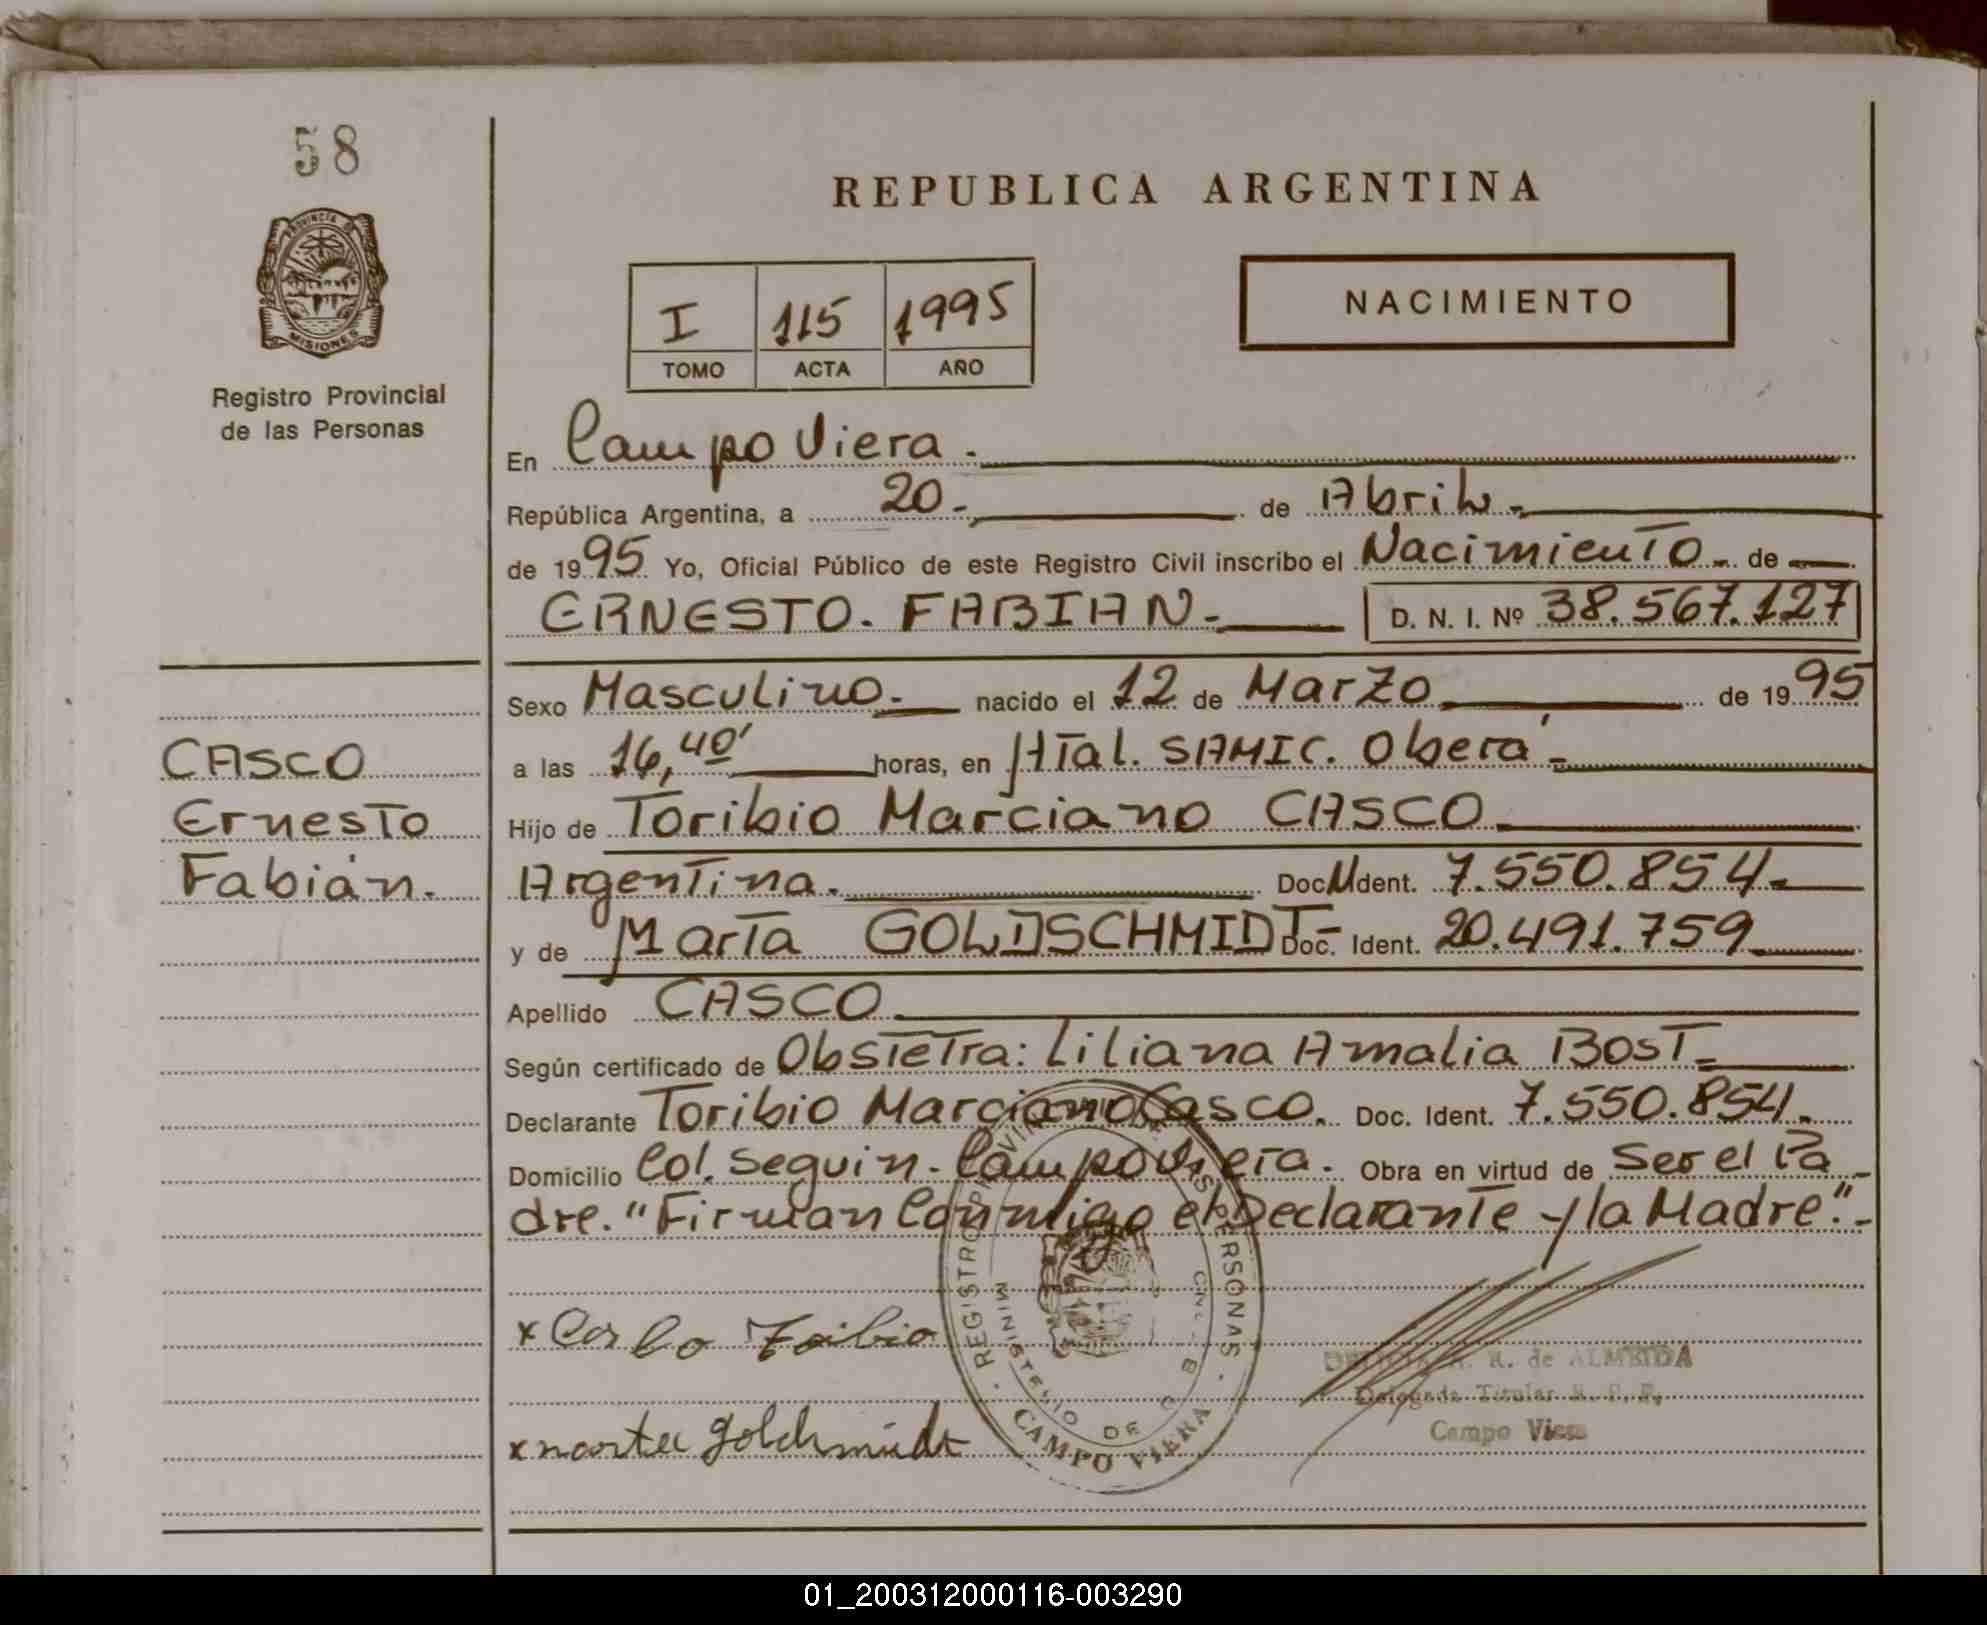 58
PROVINCIA DE
MISIONES
Registro Provincial
de las Personas
REPUBLICA ARGENTINA
I 115 1995
TOMO ACTA AÑO
NACIMIENTO
En Campo Viera.
República Argentina, a 20.- de Abril.-
de 1995 Yo, Oficial Público de este Registro Civil inscribo el Nacimiento.- de
ERNESTO. FABIAN.- D. N. I. Nº 38.567.127
Sexo Masculino.- nacido el 12 de Marzo de 1995
a las 16,40' horas, en HTal. SAMIC. Oberá.-
CASCO
Ernesto
Fabián.
Hijo de Toribio Marciano CASCO
Argentina. Doc. M Ident. 7.550.854.-
y de Marta GOLDSCHMIDT- Doc. Ident. 20.491.759
Apellido CASCO.
Según certificado de Obstetra: Liliana Amalia BOST.-
Declarante Toribio Marciano Casco. Doc. Ident. 7.550.854.
Domicilio Col. Seguin. Campo Viera. Obra en virtud de Ser el Pa-
dre. "Firman Conmigo el Declarante y la Madre".-
REGISTRO PROVINCIAL DE LAS PERSONAS
MINISTERIO DE
CAMPO VIERA
x Casco Toribio
R. de ALMEIDA
Delegada Titular R. P. P.
Campo Viera
x marta goldchmidt
01_200312000116-003290